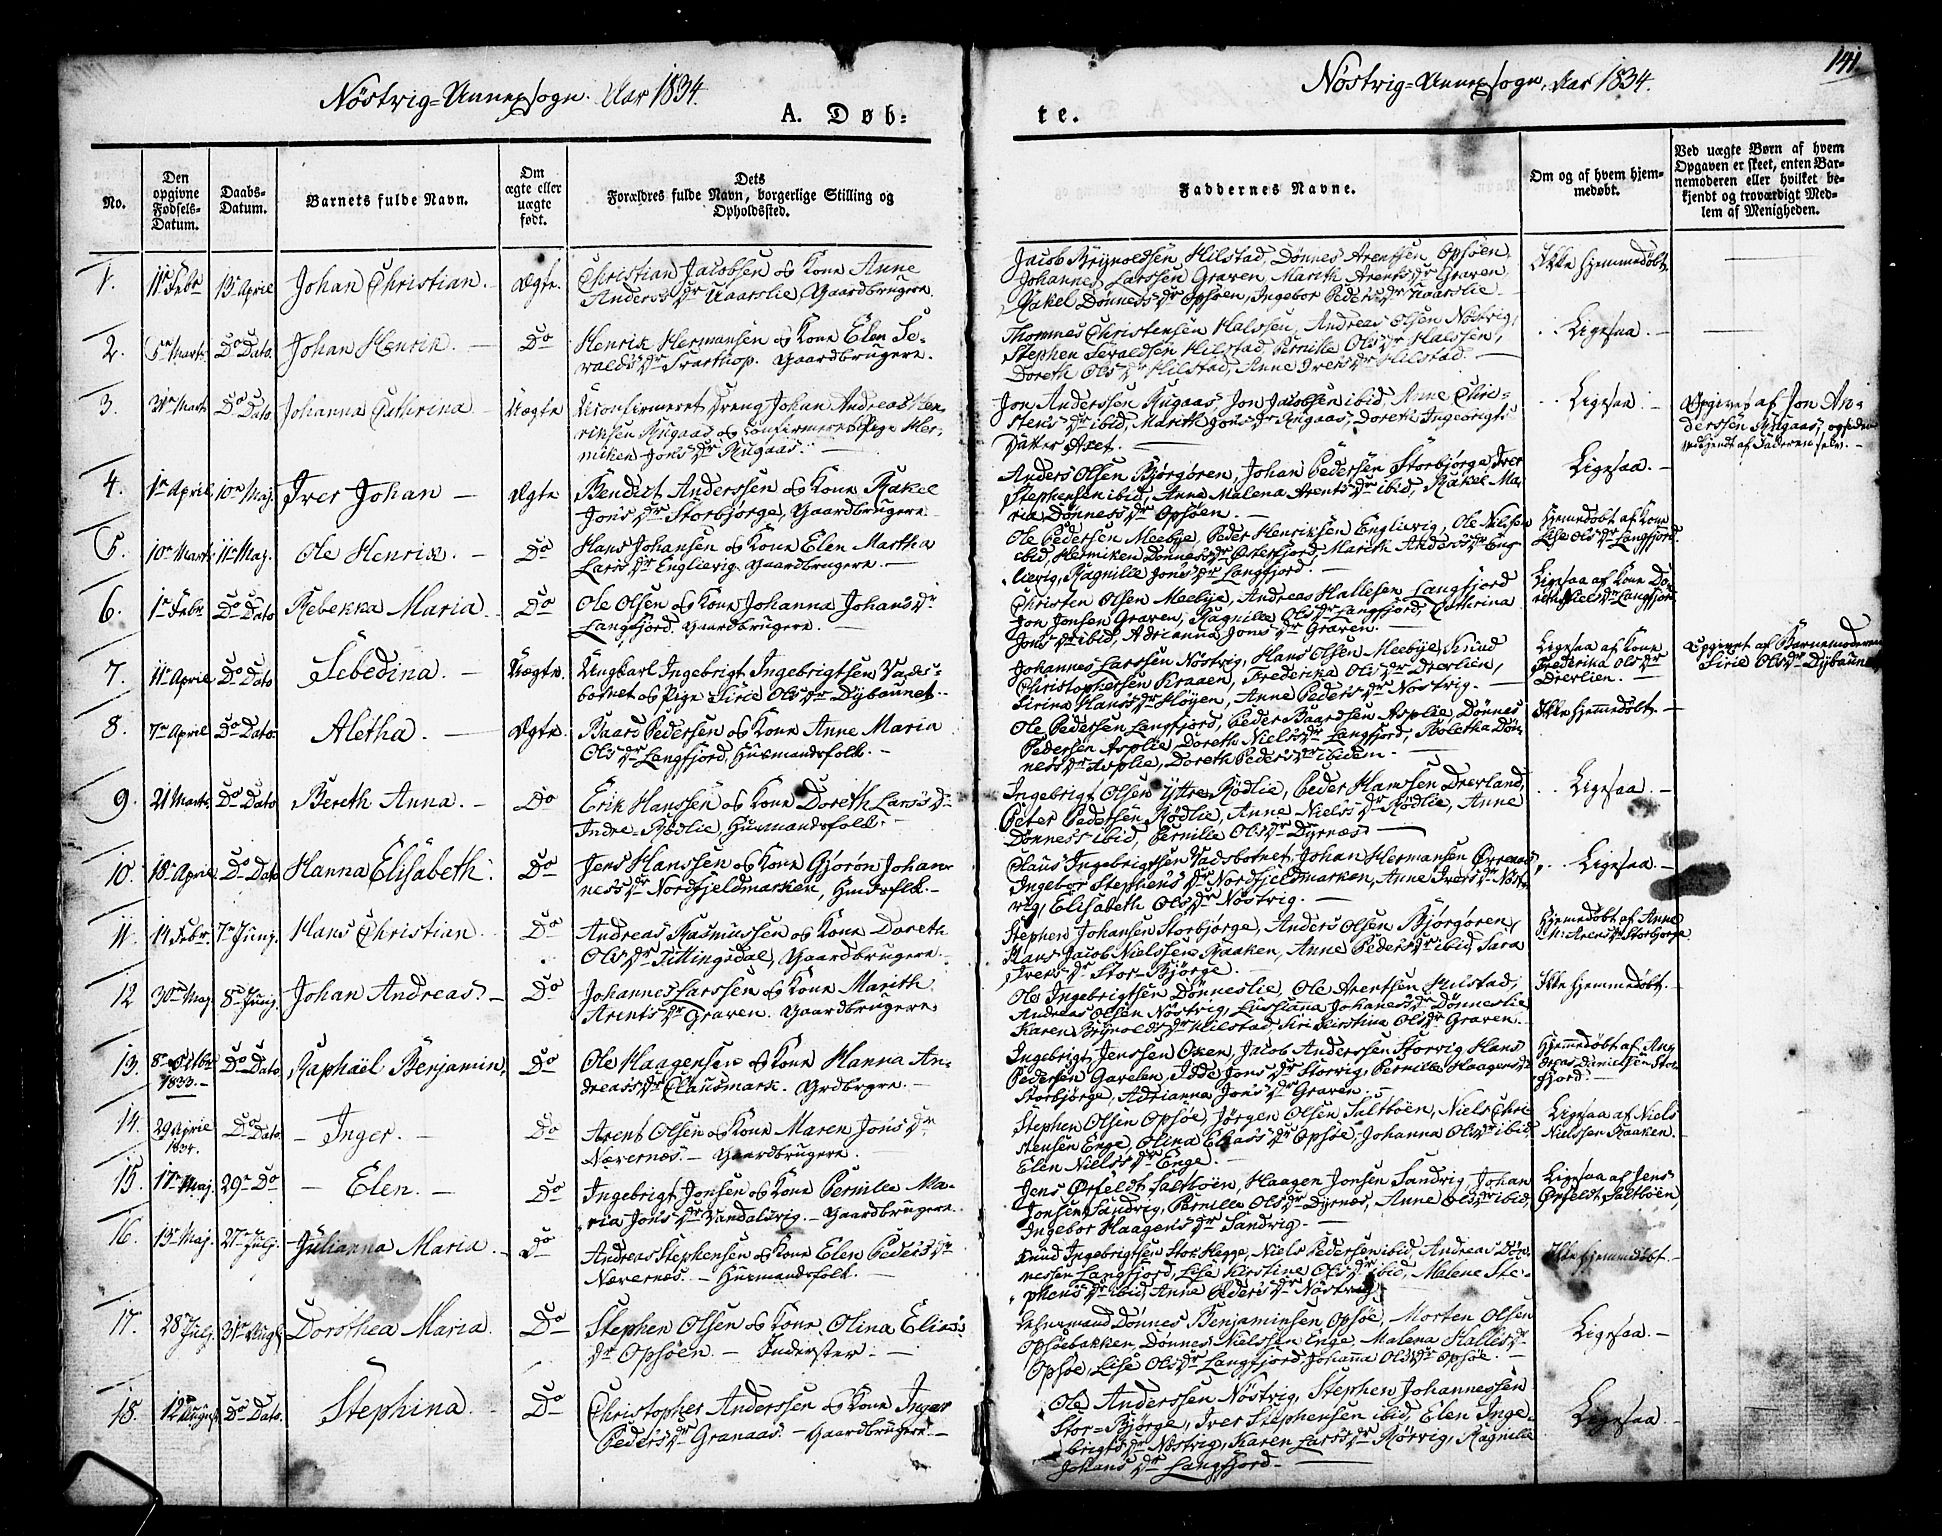 141.
Nöstvig=Annexsogn. Aar 1834.
Nöstvig=Annexsogn, Aar 1834.
A. Døb=
te.
No.
Den opgivne Fødsels-Datum.
Daabs-Datum.
Barnets fulde Navn.
Om ægte eller uægte født.
Dets Forældres fulde Navn, borgerlige Stilling og Opholdssted.
Faddernes Navne.
Om og af hvem hjemmedøbt.
Ved uægte Børn af hvem Opgaven er skeet, enten Barnemoderen eller hvilket bekjendt og troværdigt Medlem af Menigheden.
1. 11te Febr 13de April Johan Christian. Ægte.
Christian Jacobsen og Kone Anne
Anders Dr Gaardbrugere.
Jacob Brÿnoldsen Hilstad, Dønnes Arentsen Opsöen,
Johannes Larssen Graven, Marith Arents Dr Graven
Rakel Dønnes Dr Opsöen, Ingebor Peders Dr
Ikke hjemmedøbt
2. Marts Do Dato. Johan Henrik. Do
Henrik Hermansen og Kone Elen Se-
valds Dr Svarthop. Gaardbrugere.
Thommes Christensen Halssen, Andreas Olsen Nöstvig,
Stephen Sevaldsen Hilstad, Pernille Ols Dr Halssen,
Doreth Ols Dr Hilstad, Anne Ivers Dr Hilstad.
Ligesaa.
3. Marts Do Dato Johanna Cathrina Uægte
Uconfirmeret Dreng Johan Andreas Hen-
riksen Rugaas og confirmeret Pige Her-
miken Jons Dr Rugaas.
Jon Anderssen Rugaas, Jon Jacobsen ibid, Anne Chri-
stens Dr ibid, Marith Jons Dr Rugaas, Doreth Ingebrigts
Datter
Ligesaa
Opgivet af Jon An-
derssen Rugaas, ogsaa
vedkjendt af Faderen selv.
4. 1te April 10de Maj. Iver Johan Ægte
Bendict Anderssen og Kone Rakel
Jons Dr Storbjörge, Gaardbrugere.
Anders Olsen Björgören, Johan Pedersen Storbjörge, Iver
Stephensen ibid, Anne Malena Arents Dr ibid, Rakel Ma-
ria Dønnes Dr Opsöen.
Ligesaa.
5. 10de Marts 11te Maj. Ole Henrik. Do
Hans Johansen og Kone Elen Martha
Lars Dr Englievig. Gaardbrugere.
Ole Pedersen Meebÿe, Peder Henriksen Englievig, Ole Nilsen
ibid, Hermiken Dønnes Dr Österfjord, Marith Anders Dr Eng-
lievig, Ragnilie Jons Dr Langfjord.
Hjemedøbt af Kone
Lise Ols Dr Langfjord.
6. 1te Febr Do Dato Rebekka Maria Do
Ole Olsen og Kone Johanna Johans Dr
Langfjord. Gaardbrugere.
Christen Olsen Meebÿe, Andreas Hallesen Langfjord
Jon Jonsen Graven, Ragnille Ols Dr Langfjord, Cathrina
Jons Dr ibid, Adrianna Jons Dr Graven.
Ligesaa af Kone Do-
Dr Langfjord
7. 11te April Do Dato Sebedina. Uægte.
Ungkarl Ingebrigt Ingebrigtsen Vads-
botnet og Pige Sirie Ols Dr Dybaunet.
Johannes Larssen Nöstvig, Hans Olsen Meebÿe, Knud
Christophersen Kraaen, Frederika Ols Dr Drevlien,
Sirina Hans Dr Höÿen, Anne Peders Dr Nöstvig.
Ligesaa af Kone
Frederika Ols Dr
Drevlien.
Opgivet af Barnemoderen
Sirie Ols Dr Dÿbaunet
8. 7de April Do Dato Aletha. Ægte.
Baard Pedersen og Kone Anne Maria
Ols Dr Langfjord, Huusmandsfolk.
Ole Pedersen Langfjord, Peder Baardsen Asplie, Dønnes
Pedersen Asplie, Doreth Niels Dr Langfjord, Døn-
nes Dr Asplie, Doreth Peders Dr ibidem.
Ikke hjemmedøbt.
9. 21 Marts Do Dato Bereth Anna. Do
Erik Hanssen og Kone Doreth Lars Dr
Indre-Rödlie, Huusmandsfolk.
Ingebrigt Olsen Ÿttre-Rödlie, Peder Hanssen Drevland,
Peter Pedersen Rödlie, Anne Niels Dr Rödlie, Anne
Dønnes ibid, Pernille Ols Dr Dyrnæs
Ligesaa
10. 18de April Do Dato Hanna Elisabeth. Do
Jens Hanssen og Kone Gjörön Johan-
nes Dr Nordfjeldmarken, Huusfolk.
Claus Ingebrigtsen Vadsbotnet, Johan Hermansen
Ingebor Stephens Dr Nordfjeldmarken, Anne Ivers Dr Nöst-
vig, Elisabeth Ols Dr Nöstvig.
Ligesaa.
11. 14 Febr 7de Junj. Hans Christian. Do
Andreas Rasmussen og Kone Doreth
Ols Dr Tittingsdal, Gaardbrugere.
Stephen Johansen Storbjörge, Anders Olsen Björgören,
Hans Jacob Nielssen Kaaken, Anne Peders Dr ibid, Sara
Ivers Dr Stor-Björge.
Hjemedøbt af Anne
M: Arens Dr Storbjorge
12 30te Maj 8de Junj. Johan Andreas. Do
Johannes Larssen og Kone Marith
Arents Dr Graven. Gaardbrugere.
Ole Ingebrigtsen Dönneslie, Ole Arentsen Hilstad,
Andreas Olsen Nöstvig, Lussianna Johanes Dr Dönneslie
Karen Brÿnolds Dr Hilstad, Siri Kirstina Ols Dr Graven.
Ikke hjemmedøbt.
13. 8de Octbr 1833. Do Dato Raphaël Benjamin. Do
Ole Haagensen og Kone Hanna An-
dreas Dr Clausmark. Grdbrgre.
Ingebrigt Jenssen Oxen, Jacob Anderssen Storvig, Hans
Pedersen Gavelen, Jons Dr Storvig, Pernille Haagens Dr
Storbjörge, Adrianna Jons Dr Graven.
Hjemmedøbt af An-
dreas Danielsen Stor-
fjord.
14. 29 April 1834. Do Dato. Inger. Do
Arent Olsen og Kone Maren Jons Dr
Nævernæs. Gaardbrugere.
Stephen Olsen Opsöe, Jörgen Olsen Saltböen, Niels Chri-
stensen Enge, Olina Elias Dr Opsöe, Johanna Ols Dr ibid,
Elen Niels Dr Enge.
Ligesaa af Niels
Nielssen Kaaken.
15. 17de Maj. 29de Do Elen. Do
Ingebrigt Jonsen og Kone Pernille Ma-
ria Jons Dr Vandalsvig. Gaardbrugere.
Jens Örfeldt Saltböen, Haagen Jonsen Sandvig, Johan
Jonsen Sandvig, Pernille Ols Dr Dÿrnes, Anne Ols Dr ibid,
Ingebor Haagens Dr Sandvig.
Ligesaa af Jens
Örfeldt Saltböen,
16. 19de Maj. 27de Julj. Julianna Maria. Do
Andreas Stephensen og Kone Elen Peders Dr
Næverness. Huusmandsfolk.
Knud Ingebrigtsen Stor Hegge, Niels Pedersen ibid, Andreas Døn-
nessen Langfjord, Lise Kirstine Ols Dr ibid, Malene Ste-
phens Dr ibid, Anne Peders Dr Nöstvig
Ikke hjemmedøbt.
17. 28de Julj. 31te Augst Dorothea Maria. Do
Stephen Olsen og Kone Olina Elias
Dr Opsöen. Inderster.
Lehnsmand Dønnes Benjaminsen Opsöe, Morten Olsen
Opsöebakken, Dønnes Nielssen Enge, Malena Halles Dr
Opsöe, Lise Ols Dr Langfjord, Johanna Ols Dr Opsöe.
Ligesaa.
18. 12te August Do Dato. Stephina. Do
Christopher Anderssen og Kone Inger
Peders Dr Granaas. Gaardbrugere.
Ole Anderssen Nöstvig, Stephen Johannessen
Stor-Björge, Iver Stephensen ibid, Elen Inge-
brigts Dr Nöstvig, Karen Lars Dr Rörvig, Ragnille
Johans Dr Langfjord.
Ligesaa